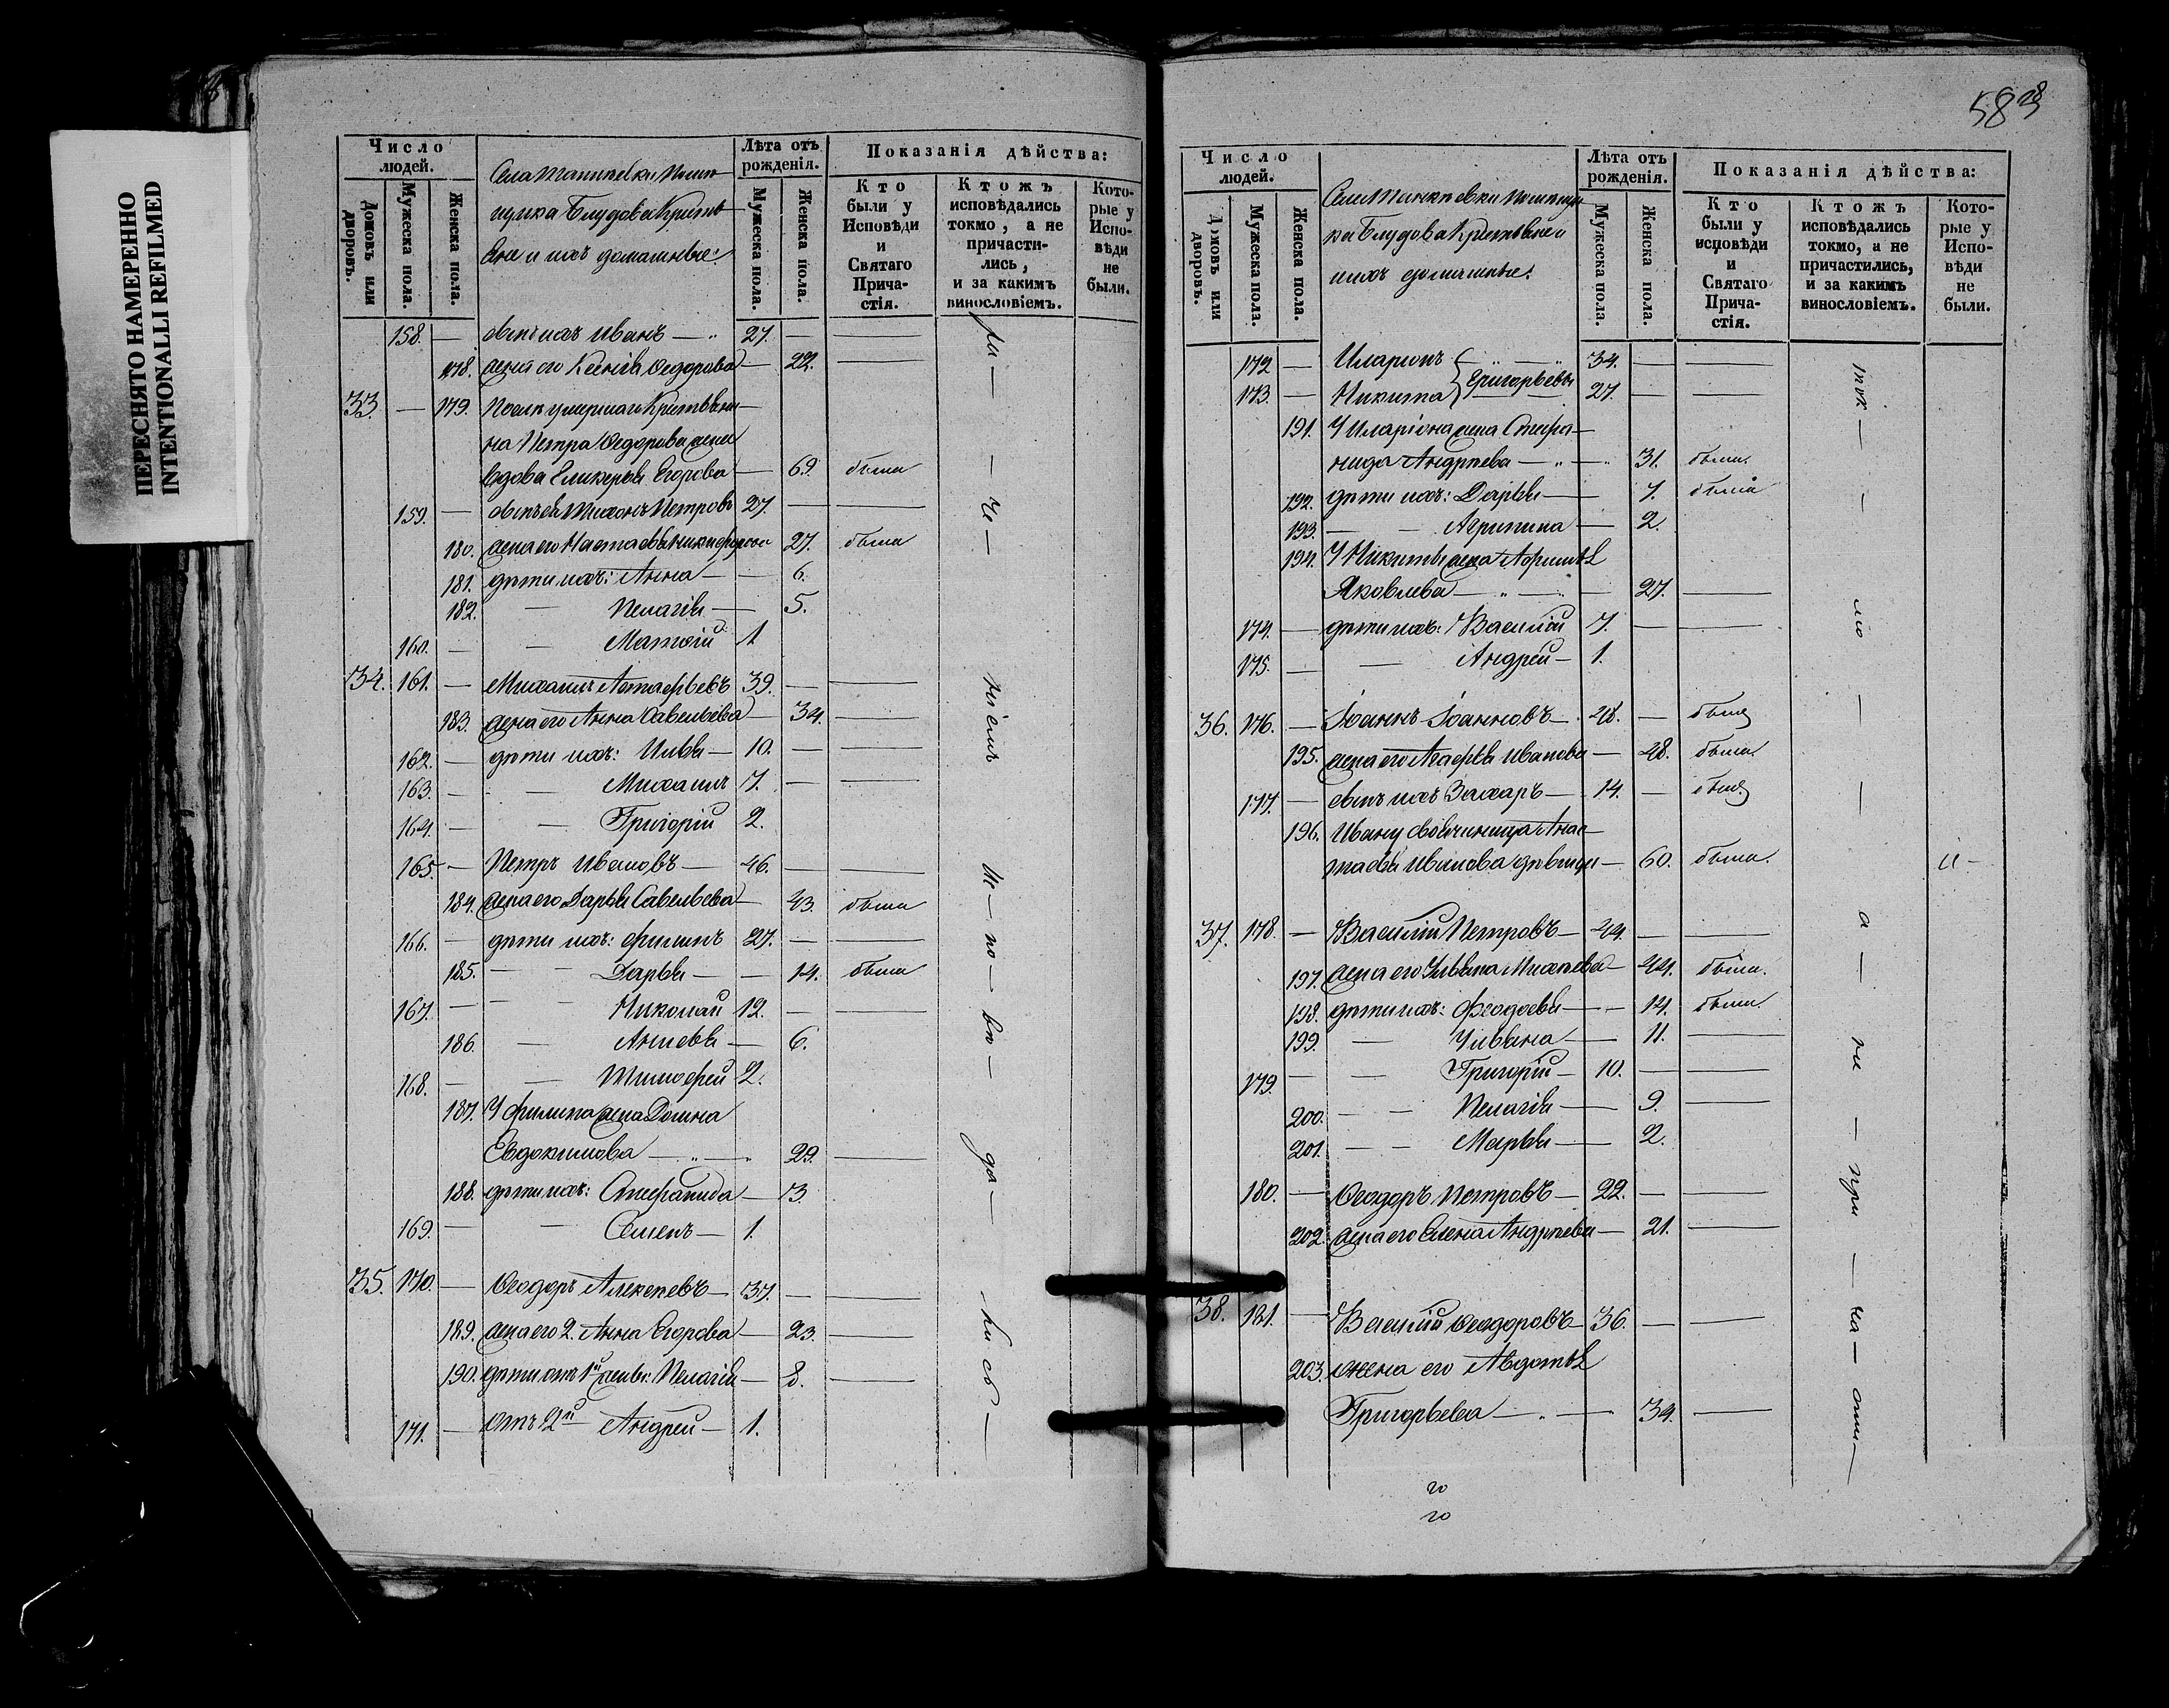 ПЕРЕСНЯТО НАМЕРЕННО
INTENTIONALLI REFILMED
Число людей.
Домовъ или дворовъ.
Мужеска пола.
Женска пола.
Села
Блудова Крестья
не и ихъ домашные:
Лѣта отъ рожденія.
Мужеска пола.
Женска пола.
Показанія дѣйства:
Кто были у Исповѣди и Святаго Причастія.
Ктожъ исповѣдались токмо, а не причастились, и за какимъ винословіемъ.
Которые у Исповѣди не были.
158. — сынъ ихъ Иванъ — 27. —
178. жена его Ксенія Ѳедорова — 22.
33. — 179. Послѣ умершаго Крестьяни
на Петра Ѳедорова жена
вдова Гликерья Егорова — 69. была
159. — сынъ ея Тихонъ Петровъ 27. —
180. жена его Настасья Никифорова 27. была
181. дѣти ихъ: Анна — 6.
182. — Пелагія — 5.
160. — — Матвѣй 1
34. 161. — Михаилъ Астафьевъ 39. —
183. жена его Анна Савельева — 34.
162. — дѣти ихъ: Илья — 10. —
163. — — Михаилъ 7. —
164. — — Григорій 2.
165. — Петръ Ивановъ — 46. —
184. жена его Дарья Савельева — 43. была
166. — дѣти ихъ: Филипъ 27. —
185. — — Дарья — 14. была
167. — — Николай 12. —
186. — — 6.
168. — — Тимофей 2.
187. У Филипа жена Домна
Евдокимова — 29.
188. дѣти ихъ: Стефанида — 3
169. — — Семенъ — 1.
35. 170. — Ѳеодоръ Алексѣевъ — 37. —
189. жена его 2. Анна Егорова — 23.
190. дѣти отъ 1й жены: Пелагія — 8.
171. — отъ 2й Андрей — 1.
583
Число людей.
Домовъ или дворовъ.
Мужеска пола.
Женска пола.
Села
Блудова Крестьяне и
ихъ домашные:
Лѣта отъ рожденія.
Мужеска пола.
Женска пола.
Показанія дѣйства:
Кто были у исповѣди и Святаго Причастія.
Ктожъ исповѣдались токмо, а не причастились, и за какимъ винословіемъ.
Которые у Исповѣди не были.
172 — Иларіонъ 34. —
Григорьевы
173. — Никита 27. —
191. У Иларіона жена Стефа—
нида Андрѣева — 31. была
192. дѣти ихъ: Дарья — 7. была
193. — — Агрипина — 2.
194. У Никиты жена
Яковлева — 27.
174. — дѣти ихъ: Василій 7. —
175. — — Андрей — 1.
36. 176. — Іоаннъ Іоанновъ — 48. — былъ
195. жена его Агафья Иванова — 48. была
177. — сынъ ихъ Захаръ — 14. — былъ
196. Ивану Анас—
тасья Иванова дѣвица — 60. была.
37. 178. — Василій Петровъ — 44. —
197. жена его Ульяна Михѣева — 44. была.
198. дѣти ихъ: Феодосья — 14. была
199. — Ульяна — 11.
179. — — Григорій — 10. —
200. — — Пелагія — 9.
201. — — Марья — 2.
180. — Ѳеодоръ Петровъ — 22. —
202. жена его Елена Андрѣева — 21.
38. 181. — Василій Ѳеодоровъ — 36. —
203. жена его Авдотья
Григорьева — 34.